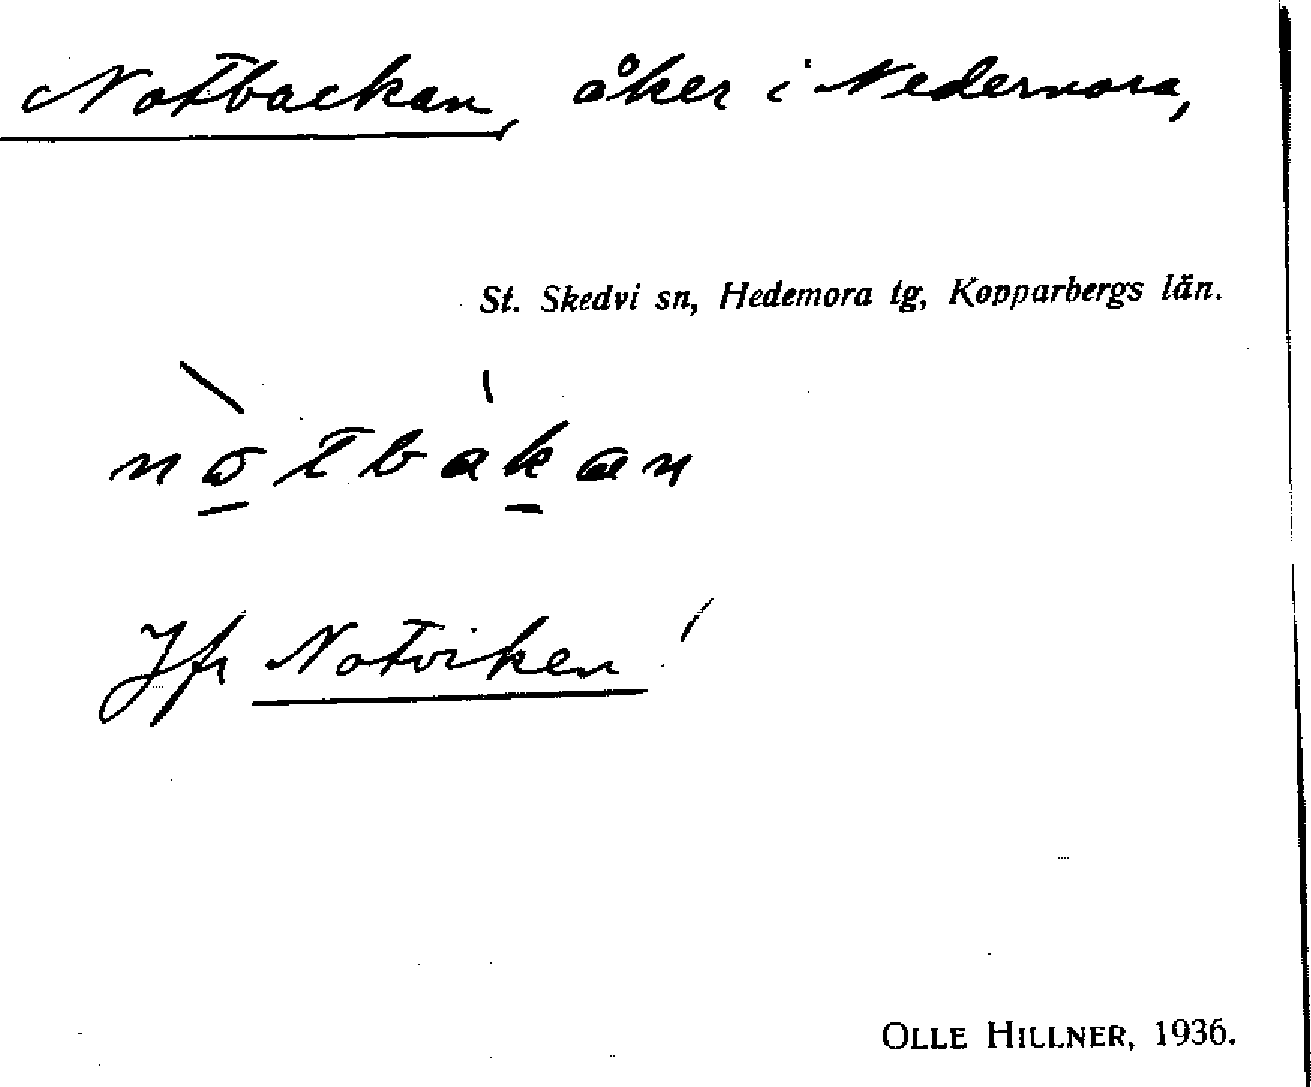 Notbackan, åker i Nedernora,
St. Skedvi sn, Hedemora tg, Kopparbergs län.
nòtbákan
Jfr Notviken!
OLLE HILLNER, 1936.